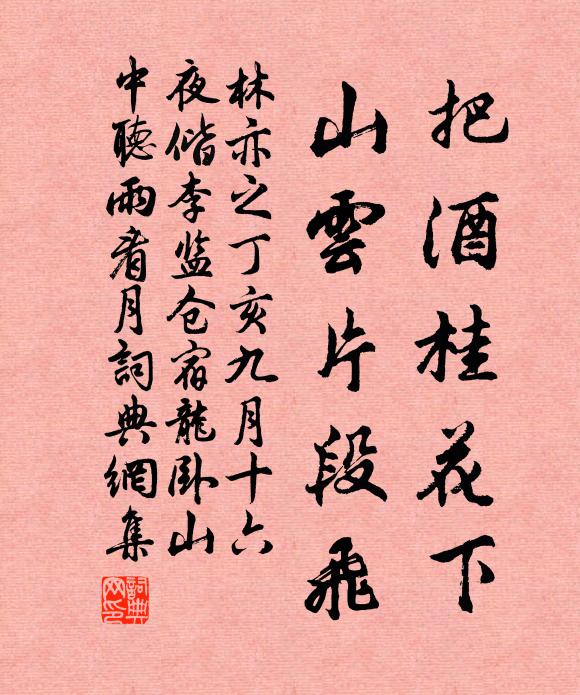 把酒桂花下
山雲片段飛
林亦之丁亥九月十六
夜偕李监仓宿龍卧山
中聽雨看月詞典網集
詞典
网印